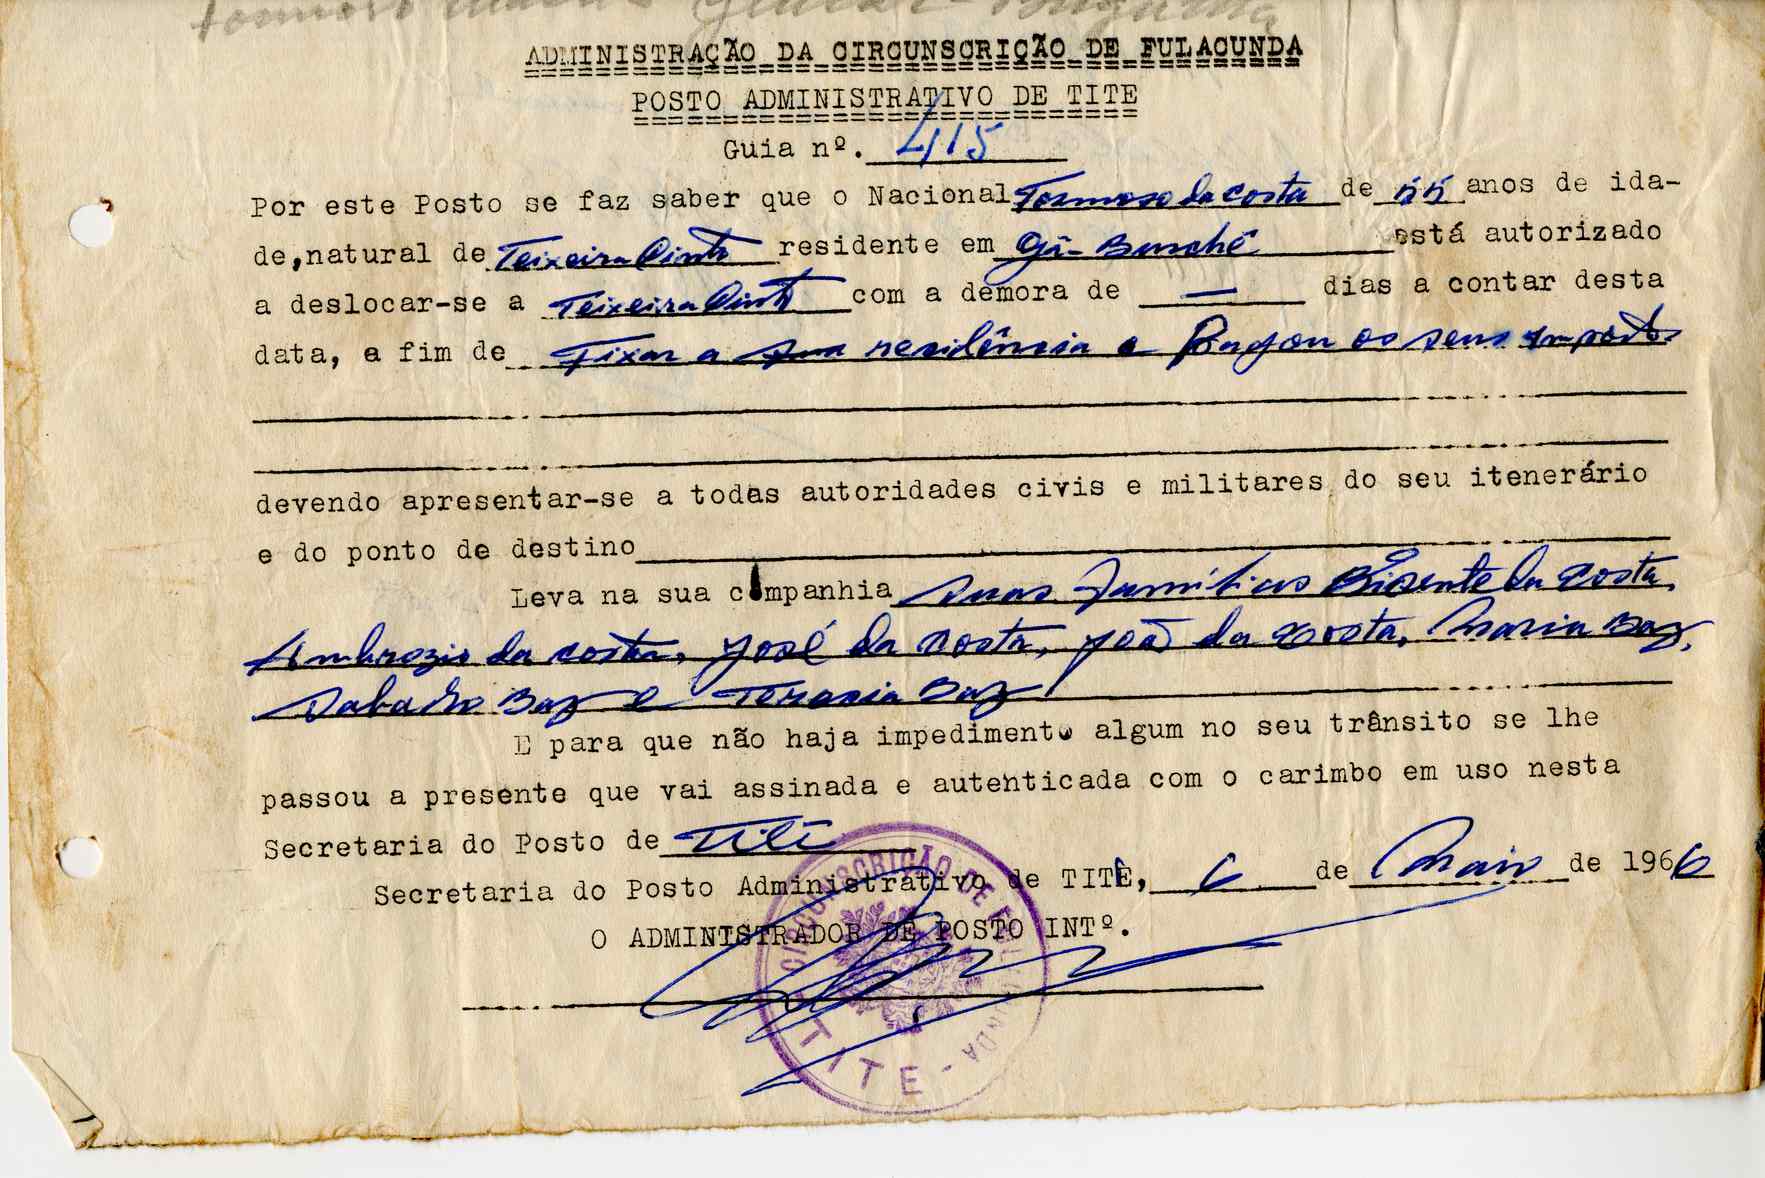 ADMINISTRAÇÃO DA CIRCUNSCRIÇÃO DE FULACUNDA
POSTO ADMINISTRATIVO DE TITE
Guia nº. 415
Por este Posto se faz saber que o Nacional Formoso da costa de anos de ida-
de, natural de Teixeira Pinto residente em Gã-Bunché está autorizado
a deslocar-se a Teixeira Pinto com a demora de — dias a contar desta
data, a fim de Fixar a sua residência e Pagou os seus impostos
devendo apresentar-se a todas autoridades civis e militares do seu itenerário
e do ponto de destino
Leva na sua companhia suas famílias da costa,
Ambrozio da costa, José da costa, João da costa, Maria Baz,
Baz e Baz
E para que não haja impedimento algum no seu trânsito se lhe
passou a presente que vai assinada e autenticada com o carimbo em uso nesta
Secretaria do Posto de Tite
Secretaria do Posto Administrativo de TITE, 6 de Maio de 1966
O ADMINISTRADOR DE POSTO INTº.
CIRCUNSCRIÇÃO DE FULACUNDA
TITE -